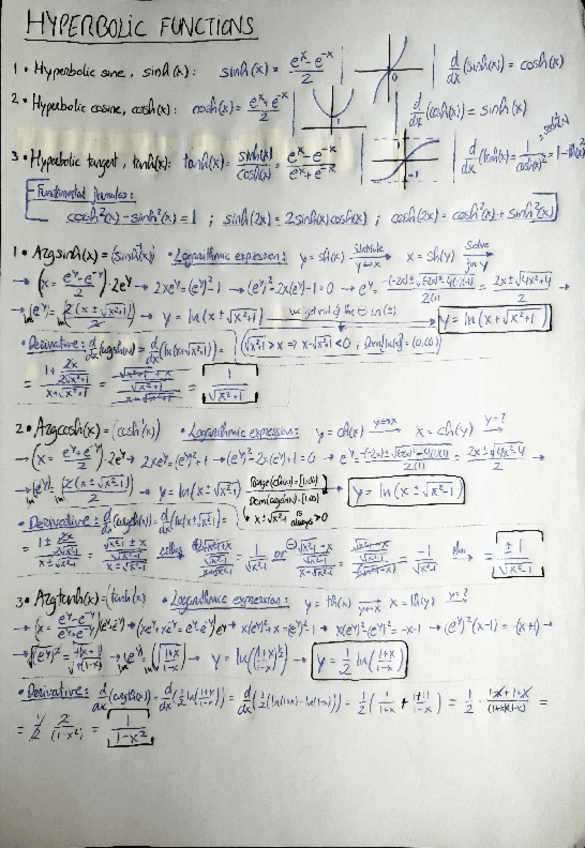 HYPERBOLIC FUNCTIONS
1 • Hyperbolic sine, sinh(x): sinh(x) = (e^x - e^-x)/2 | 0 | d/dx (sinh(x)) = cosh(x)
2 • Hyperbolic cosine, cosh(x): cosh(x) = (e^x + e^-x)/2 | 1 | d/dx (cosh(x)) = sinh(x)
3 • Hyperbolic tangent, tanh(x): tanh(x) = sinh(x)/cosh(x) = (e^x - e^-x)/(e^x + e^-x) | 1 -1 | d/dx (tanh(x)) = 1/cosh(x)^2 = 1 - th(x)^2
Fundamental formulas:
cosh^2(x) - sinh^2(x) = 1 ; sinh(2x) = 2 sinh(x) cosh(x) ; cosh(2x) = cosh^2(x) + sinh^2(x)
1 • Argsinh(x) = (sinh^-1(x)) • Logarithmic expression: y = sh(x) Substitute y↔x x = sh(y) Solve for y
→ (x = (e^y - e^-y)/2) · 2e^y → 2xe^y = (e^y)^2 - 1 → (e^y)^2 - 2x(e^y) - 1 = 0 → e^y = (-(-2x) ± √((-2x)^2 - 4(1)(-1)))/2(1) = (2x ± √(4x^2 + 4))/2 →
→ ln(e^y) = ln(2(x ± √(x^2+1))/2) → y = ln(x ± √(x^2+1)) we get rid of the ⊖ in (±) → y = ln(x + √(x^2+1))
• Derivative: d/dx (argsh(x)) = d/dx (ln(x + √(x^2+1))) = (√(x^2+1) > x ⇒ x - √(x^2+1) < 0 ; Dom(ln(x)) = (0, ∞))
= (1 + 2x/(2√(x^2+1)))/(x + √(x^2+1)) = ((√(x^2+1) + x)/√(x^2+1))/(x + √(x^2+1)) = 1/√(x^2+1)
2 • Argcosh(x) = (cosh^-1(x)) • Logarithmic expression: y = ch(x) y↔x x = ch(y) y=?
→ (x = (e^y + e^-y)/2) · 2e^y → 2xe^y = (e^y)^2 + 1 → (e^y)^2 - 2x(e^y) + 1 = 0 → e^y = (-(-2x) ± √((-2x)^2 - 4(1)(1)))/2(1) = (2x ± √(4x^2 - 4))/2 →
→ ln(e^y) = ln(2(x ± √(x^2-1))/2) → y = ln(x ± √(x^2-1)) Range(ch(x)) = [1,∞) Dom(argch(x)) = [1,∞) x ± √(x^2-1) is always > 0 → y = ln(x ± √(x^2-1))
• Derivative: d/dx (argch(x)) = d/dx (ln(x ± √(x^2-1))) =
= (1 ± 2x/(2√(x^2-1)))/(x ± √(x^2-1)) = ((√(x^2-1) ± x)/√(x^2-1))/(x ± √(x^2-1)) either ⊕ ((√(x^2-1) + x)/√(x^2-1))/(x + √(x^2-1)) = 1/√(x^2-1) or ⊖ ((√(x^2-1) - x)/√(x^2-1))/(x - √(x^2-1)) = ((√(x^2-1) - x)/√(x^2-1))/(-(√(x^2-1) - x)) = -1/√(x^2-1) = ±1/√(x^2-1)
3 • Argtanh(x) = (tanh^-1(x)) • Logarithmic expression: y = th(x) y↔x x = th(y) y=?
→ (x = (e^y - e^-y)/(e^y + e^-y)) (e^y + e^-y) → (xe^y + xe^-y = e^y - e^-y) e^y → x(e^y)^2 + x = (e^y)^2 - 1 → x(e^y)^2 - (e^y)^2 = -x - 1 → (e^y)^2 (x-1) = -(x+1) →
→ √(e^y)^2 = √(-(x+1)/-(1-x)) → ln(e^y) = ln(√((1+x)/(1-x))) → y = ln((1+x)/(1-x))^1/2 → y = 1/2 ln((1+x)/(1-x))
• Derivative: d/dx (argth(x)) = d/dx (1/2 ln((1+x)/(1-x))) = d/dx (1/2 (ln(1+x) - ln(1-x))) = 1/2 (1/(1+x) + (+1)/(1-x)) = 1/2 · (1-x+1+x)/((1+x)(1-x)) =
= 1/2 · 2/(1-x^2) = 1/(1-x^2)